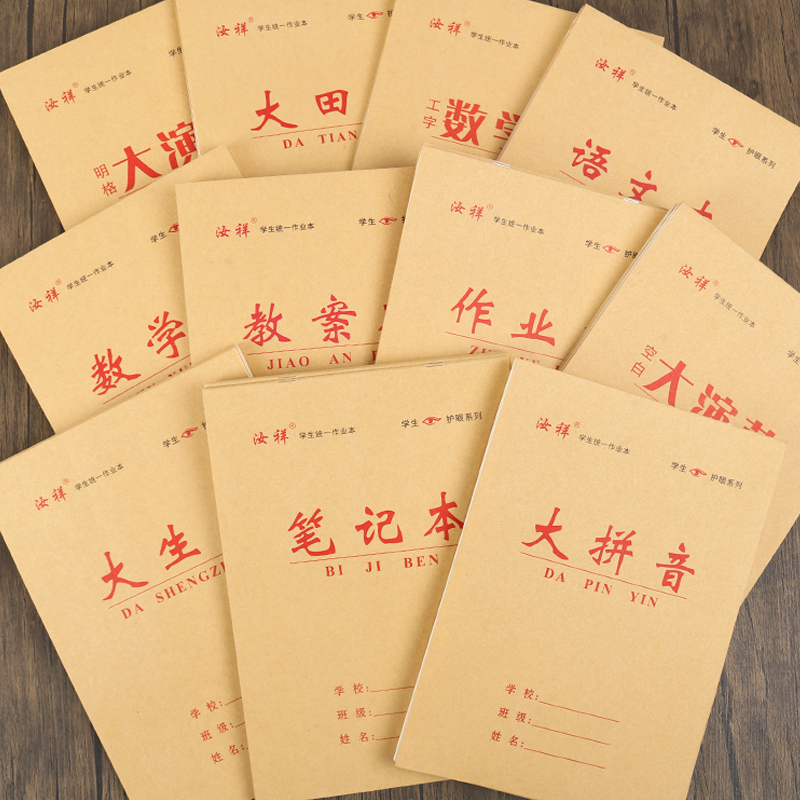 汝祥® 学生统一作业本
学生
明格 大演
汝祥® 学生统一作业本
大田
DA TIAN
汝祥® 学生统一作业本
工字 数学
汝祥® 学生统一作业本
学生 护眼系列
语文
汝祥® 学生统一作业本
学生
数学
汝祥® 学生统一作业本
学生
教案
JIAO AN
汝祥® 学生统一作业本
学生 护眼系列
作业
汝祥® 学生统一作业本
空白 大演草
汝祥® 学生统一作业本
学生
大生
DA SHENGZ
学校:
班级:
姓名:
汝祥® 学生统一作业本
学生 护眼系列
笔记本
BI JI BEN
学校:
班级:
姓名:
汝祥® 学生统一作业本
学生 护眼系列
大拼音
DA PIN YIN
学校:
班级:
姓名: